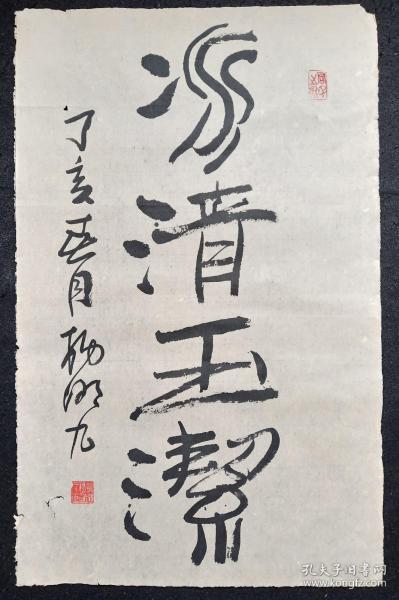 冰清玉潔
丁亥春月 楊明九
孔夫子旧书网
www.kongfz.com